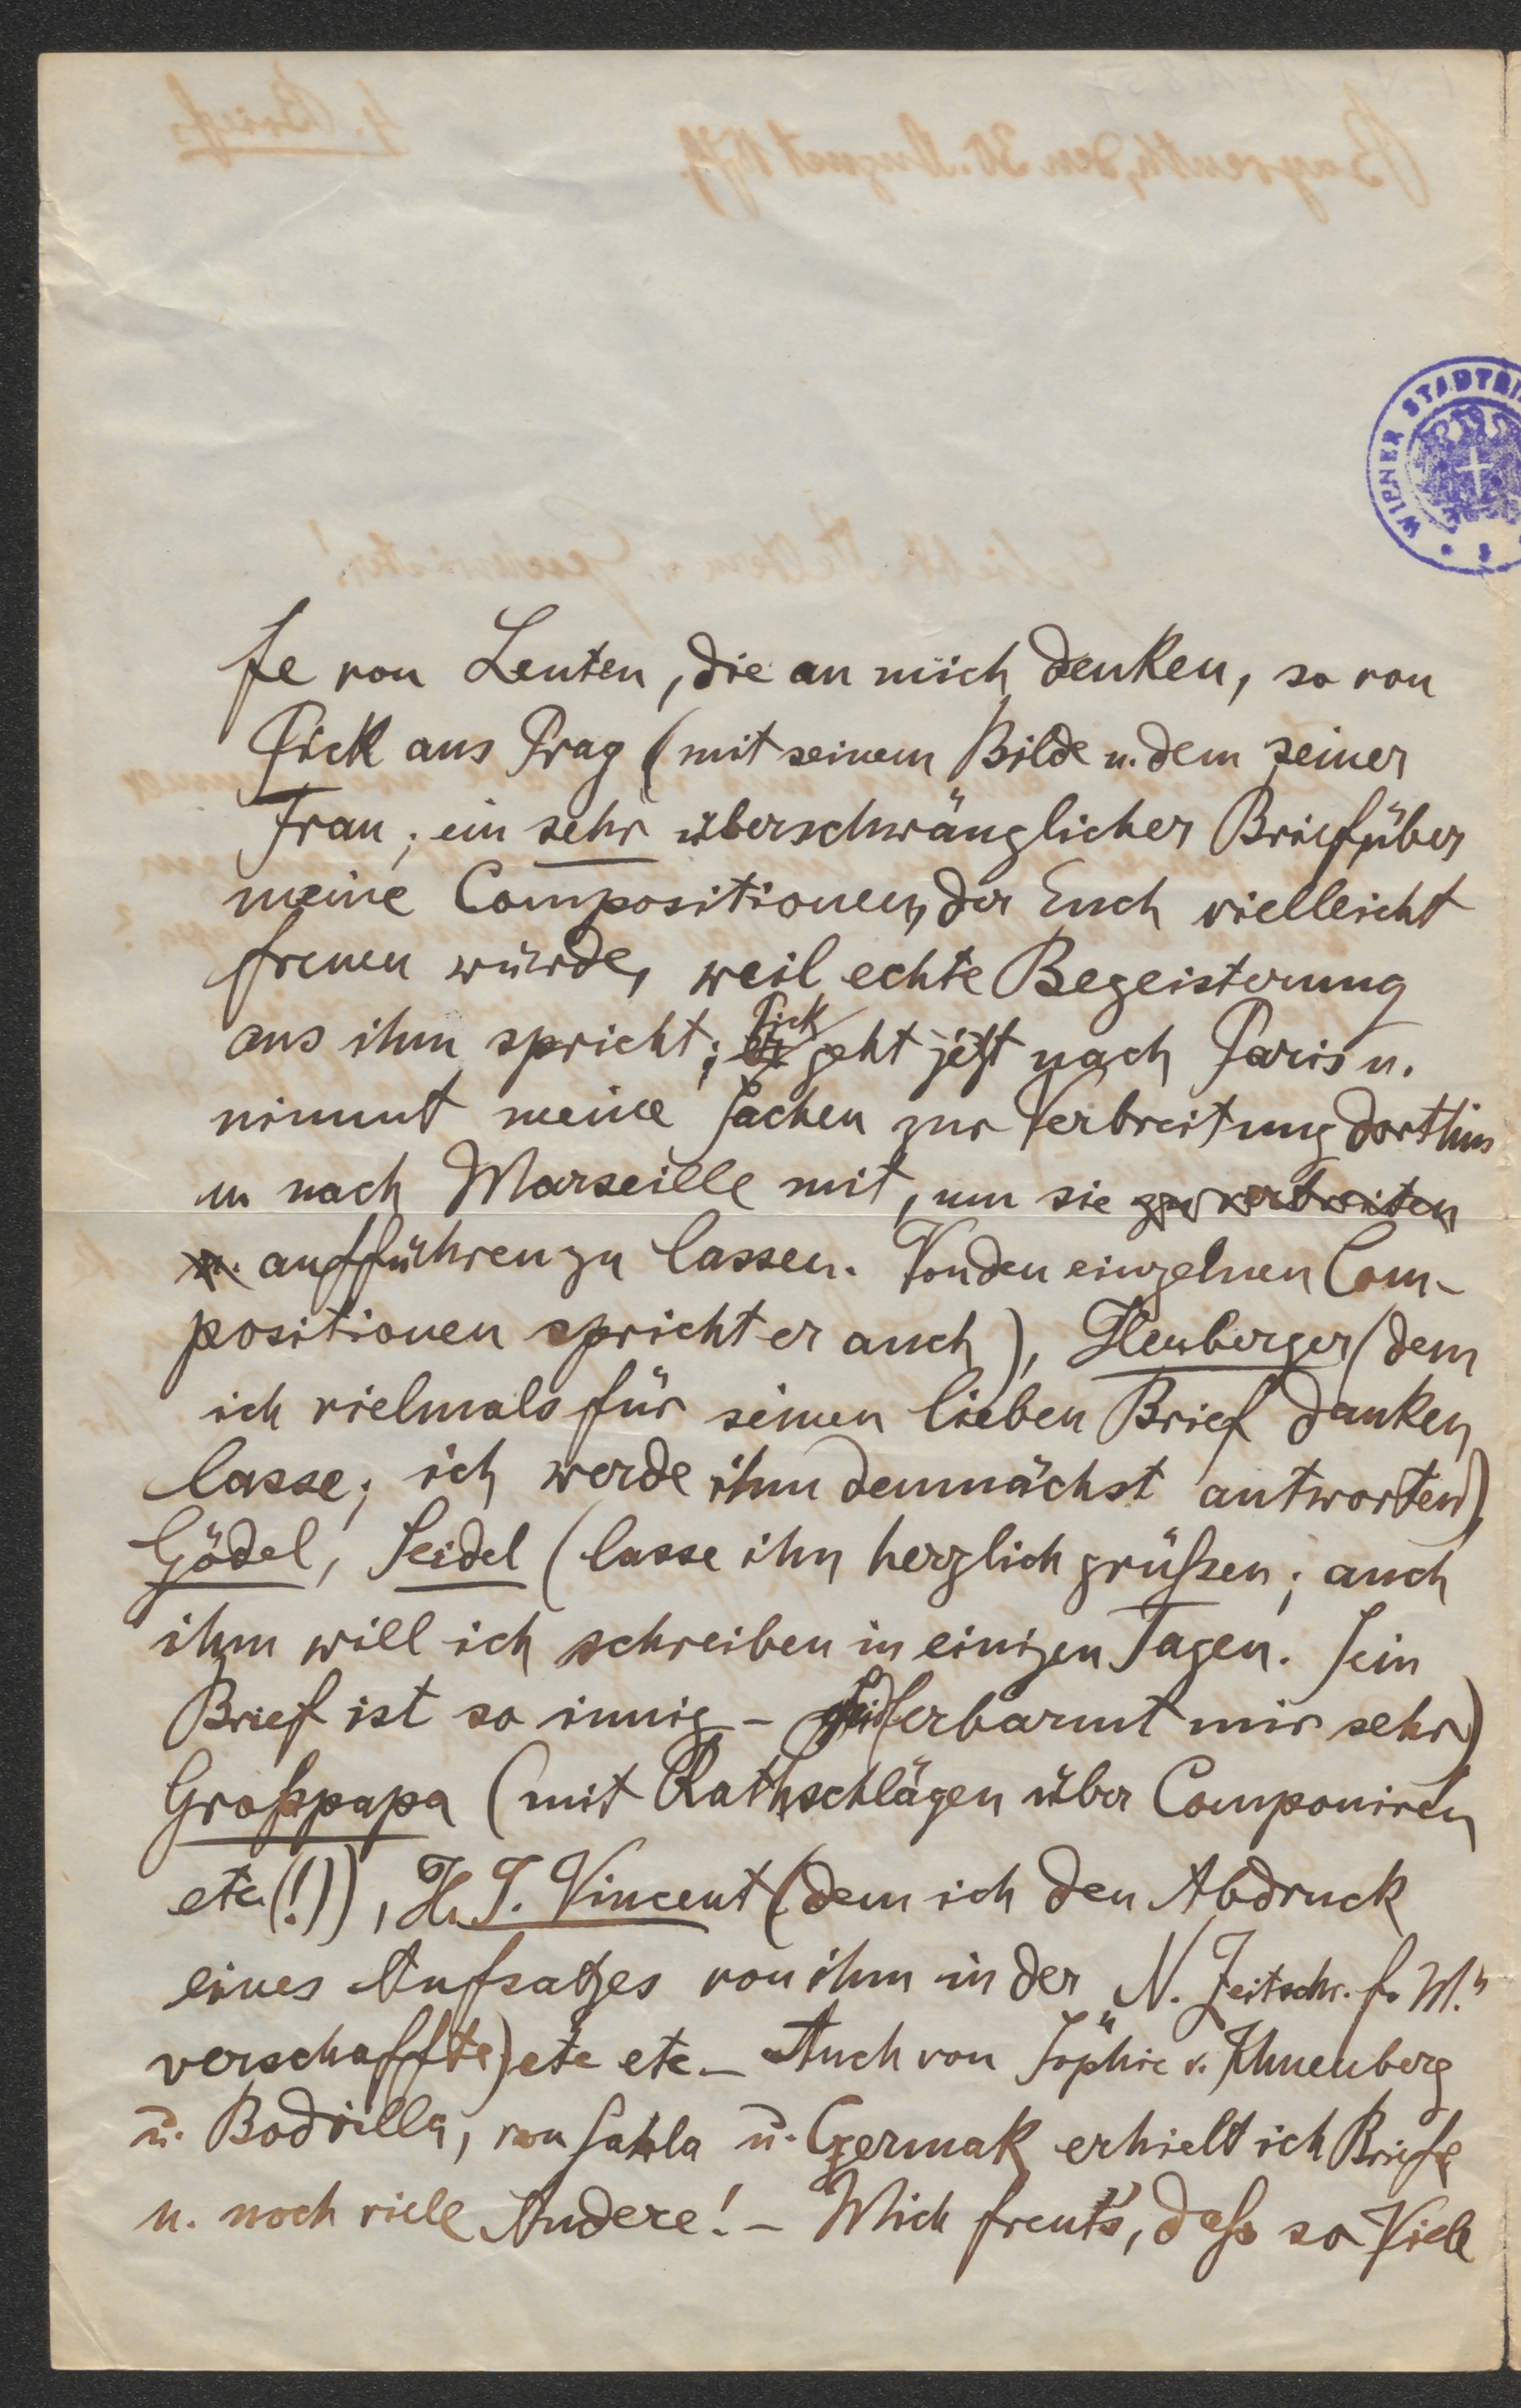 WIENER STADTBI
fe von Leuten, die an mich denken, so von
Pick aus Prag (mit seinem Bilde u. dem seiner
Frau; ein sehr überschwänglicher Brief über
meine Compositionen, der Euch vielleicht
freuen würde, weil echte Begeisterung
aus ihm spricht; er Pick geht jetzt nach Paris u.
nimmt meine Sachen zur Verbreitung dorthin
u. nach Marseille mit, um sie zu verbreiten
u. aufführen zu lassen. Von den einzelnen Com-
positionen spricht er auch), Heuberger (dem
ich vielmals für seinen lieben Brief danken
lasse; ich werde ihm demnächst antworten),
Gödel, Seidel (lasse ihn herzlich grüßen; auch
ihm will ich schreiben in einigen Tagen. Sein
Brief ist so innig – erbarmt mir sehr)
Großpapa (mit Rathschlägen über Componiren
etc (!)), H. J. Vincent (dem ich den Abdruck
eines Aufsatzes von ihm in der „N. Zeitschr. f. M."
verschaffte) etc etc. – Auch von Sophie v. Khuenberg
u. Bodrilla, von Sahla u. Czermak erhielt ich Briefe
u. noch viele Andere! – Mich freut's, daß so Viele